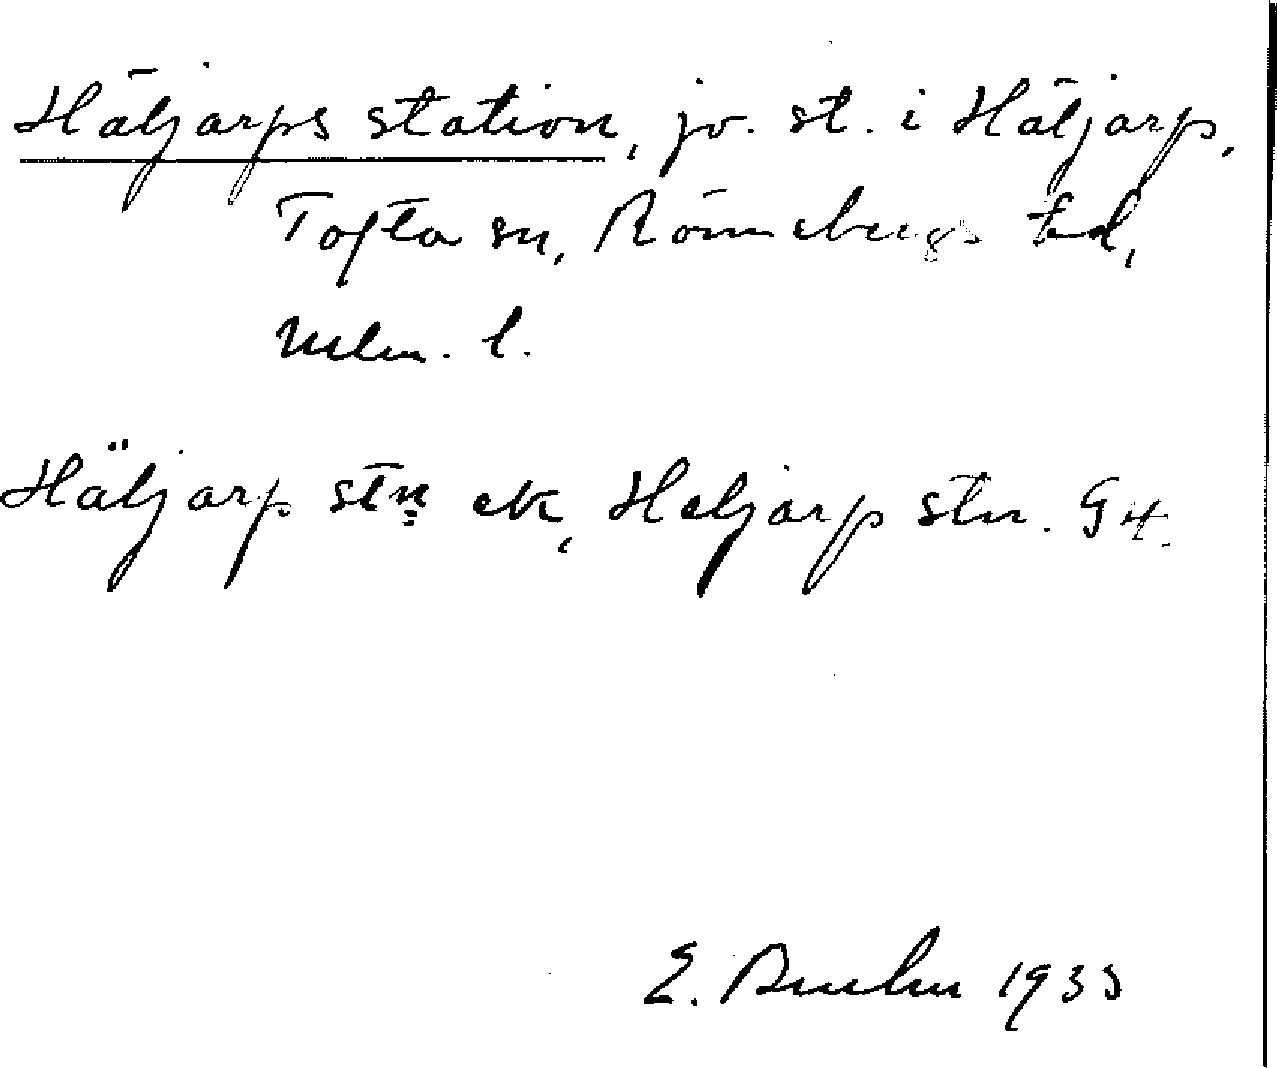 Häljarps station, jv. st. i Häljarp,
Tofta sn, Rönnebergs hd,
Mlm. l.
Häljarp stn ek, Heljarp stn. G4.
E. 1933